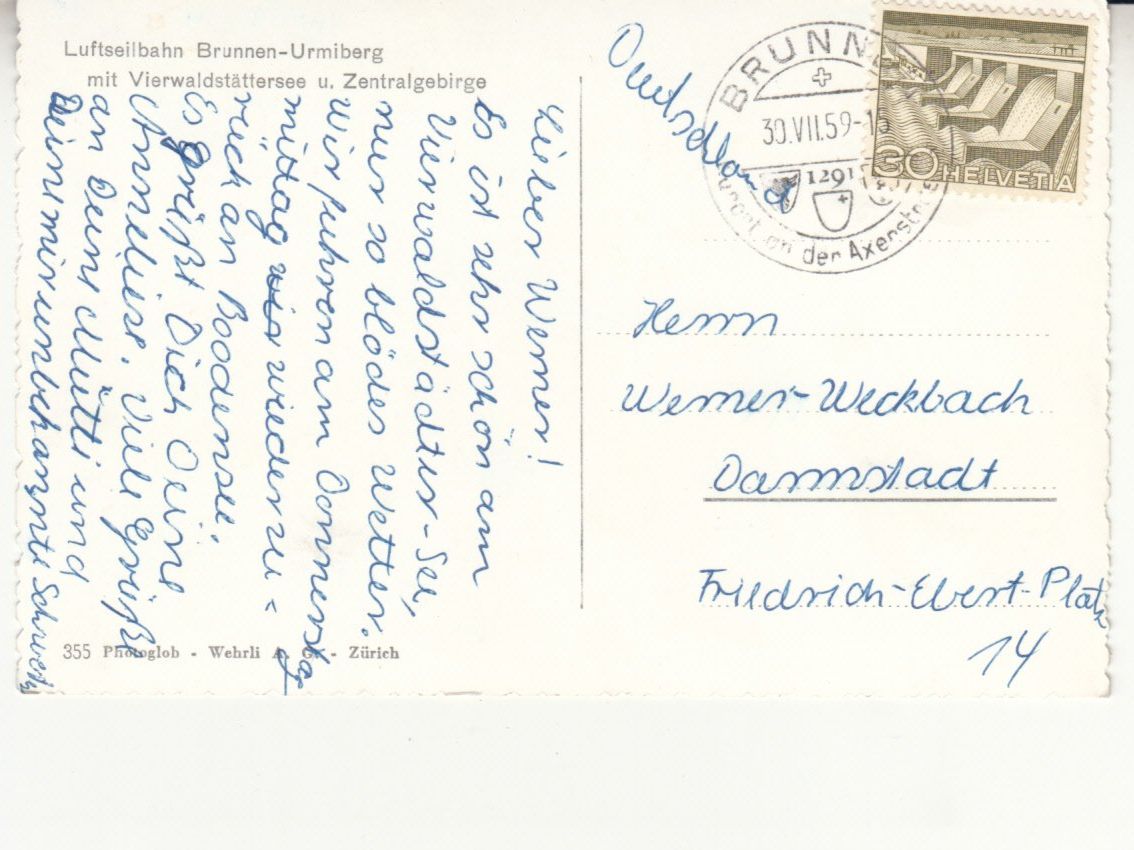 Luftseilbahn Brunnen-Urmiberg
mit Vierwaldstättersee u. Zentralgebirge
Lieber Werner!
Es ist sehr schön am
Vierwaldstädter-See,
nur so blödes Wetter.
Wir fuhren am Donnerstag
mittag wir wieder zu=
rück an Boodensee.
Es grüßt Dich Deine
Anneliese. Viele Grüße
an Deine Mutti und
Deine mir unbekannte Schwester
355 Photoglob - Wehrli A. G. - Zürich
Deutschland
BRUNNEN
30.VII.59-18
1291
Kurort an der Axenstrasse
30 HELVETIA
Herrn
Werner Weckbach
Darmstadt
Friedrich-Ebert-Platz
14